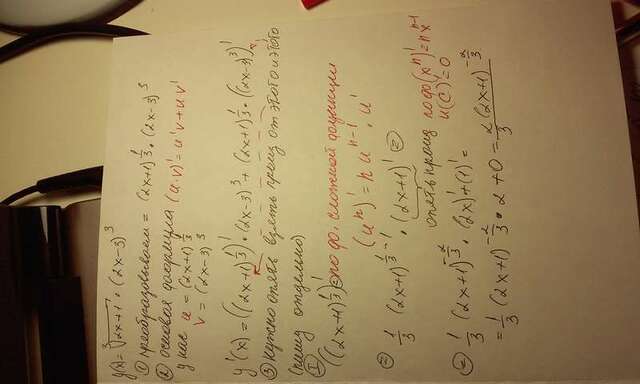 y(x) = ∛(2x+1) · (2x-3)³
① преобразовываем = (2x+1)^(1/3) · (2x-3)³
② основная формула (u·v)' = u'v + uv'
у нас u = (2x+1)^(1/3)
v = (2x-3)³
y'(x) = ((2x+1)^(1/3))' · (2x-3)³ + (2x+1)^(1/3) · ((2x-3)³)'
③ нужно опять взять произ от этого и этого
(пишу отдельно)
I
((2x+1)^(1/3))' = по фо. сложной функции
(uⁿ)' = n uⁿ⁻¹ · u'
= 1/3 (2x+1)^(1/3 - 1) · (2x+1)' =
опять произ по фо (xⁿ)' = nxⁿ⁻¹
и (C)' = 0
= 1/3 (2x+1)^(-2/3) · (2x)' + (1)' =
= 1/3 (2x+1)^(-2/3) · 2 + 0 = 2(2x+1)^(-2/3)/3